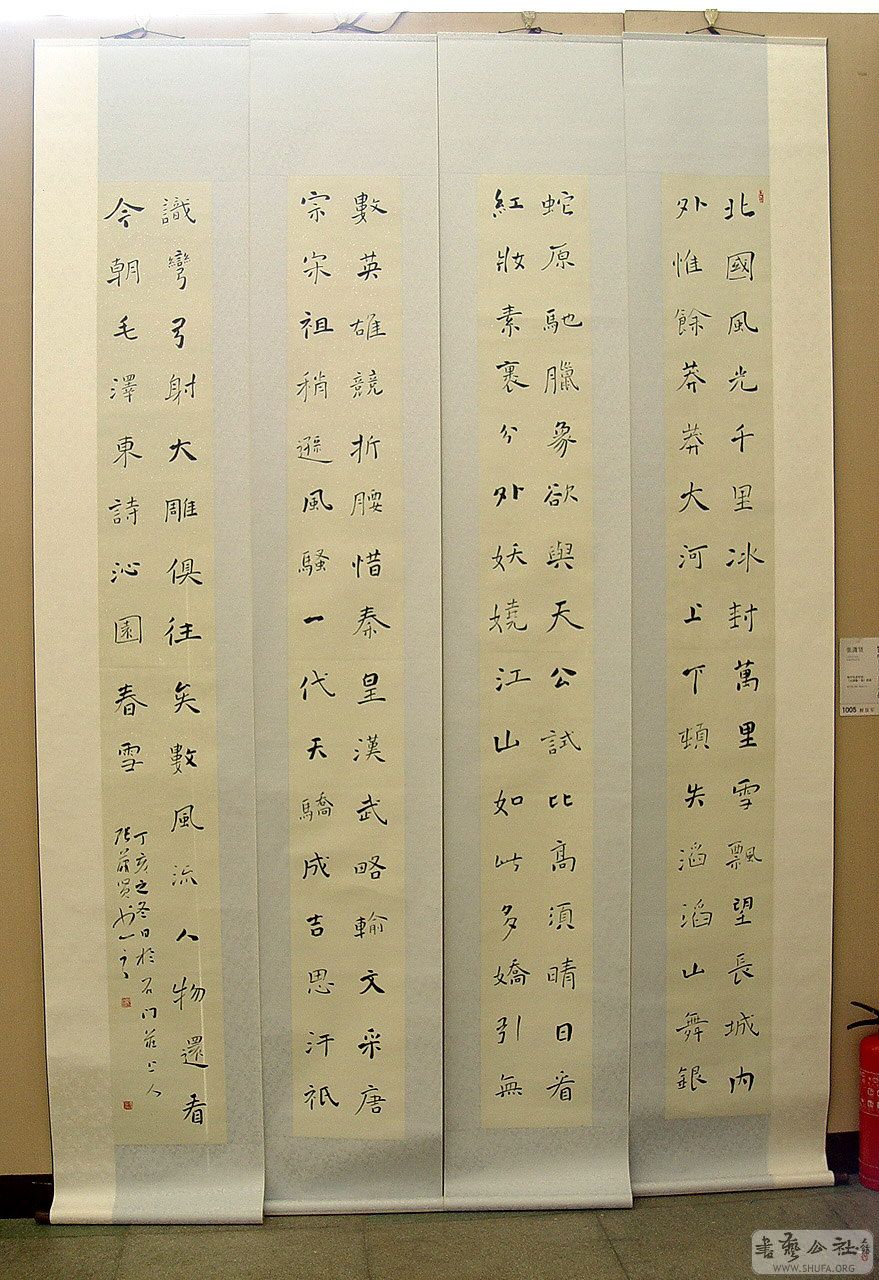 北國風光千里冰封萬里雪飄望長城內
外惟餘莽莽大河上下頓失滔滔山舞銀
蛇原馳臘象欲與天公試比高須晴日看
紅妝素裹分外妖嬈江山如此多嬌引無
數英雄競折腰惜秦皇漢武略輸文采唐
宗宋祖稍遜風騷一代天驕成吉思汗祇
識彎弓射大雕俱往矣數風流人物還看
今朝毛澤東詩沁園春雪
丁亥之冬日於石門
1005
書藝公社
WWW.SHUFA.ORG